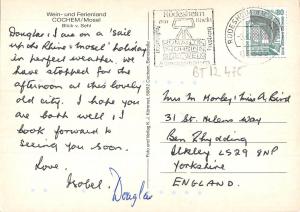 Wein- und Ferienland
COCHEM/Mosel
Blick v. Sehl
Douglas & I are on a 'sail
up the Rhine & Mosel' holiday
in perfect weather. We
have stopped for the
afternoon at this lovely
old city. I hope you
are both well & I
look forward to
seeing you soon.
Love,
Isobel. Douglas
Rüdesheim
am Rhein
RÜDESHEIM
80
BT 12 475
Mrs M Morley/Miss A Bird
31 St. Helens Way
Ben Rhydding
Ilkley LS29 9NP
Yorkshire
ENGLAND.